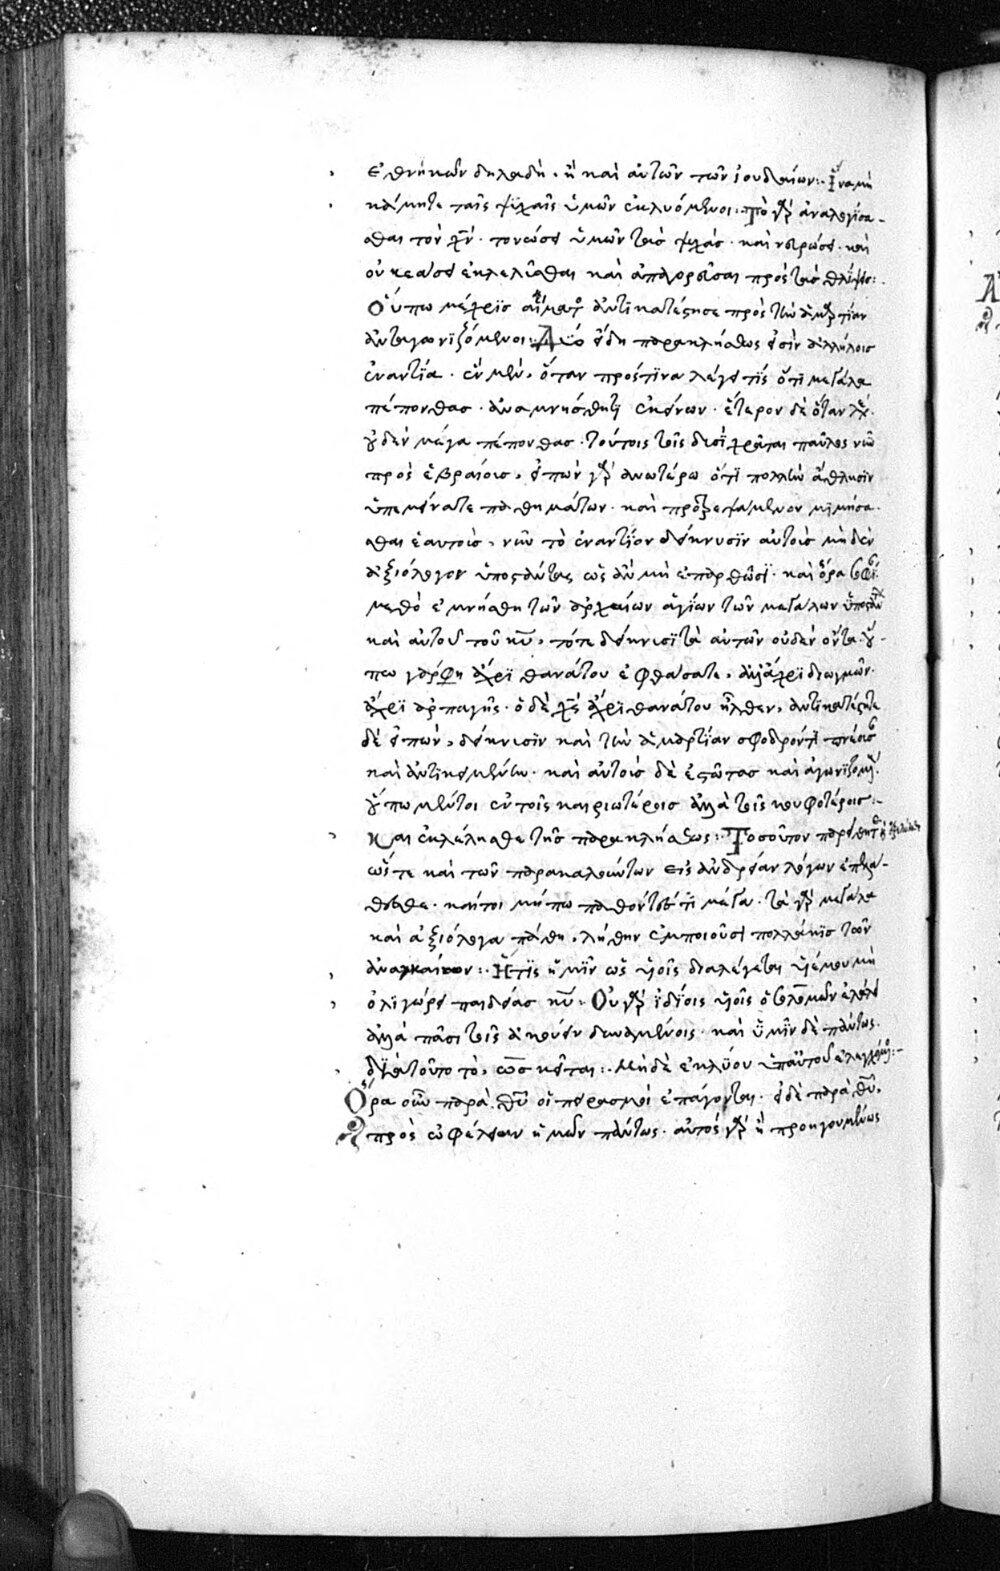 ἐθνικῶν δηλαδὴ· ἢ καὶ αὐτῶν τῶν ἰουδαίων:· Ἵνα μὴ
κάμητε ταῖς ψυχαῖς ὑμῶν ἐκλυόμενοι:· Τὸ γὰρ ἀναλογίσα-
σθαι τὸν χν· τονώσει ὑμῶν τὰς ψυχάς· καὶ νευρώσει· καὶ
οὐκ ἐάσει ἐκλελύσθαι καὶ ἀπαγορεῦσαι πρὸς τὰς θλίψεις:·
Οὔπω μέχρις αἵματος ἀντικατέστητε πρὸς τὴν ἁμαρτίαν
ἀνταγωνιζόμενοι:· Δύο εἴδη παρακλήσεως εἰσὶν ἀλλήλοις
ἐναντία· ἓν μὲν, ὅταν πρός τινα λέγει τίς ὅτι μεγάλα
πέπονθας· ἀναμνήσθητι ἐκείνων· ἕτερον δὲ ὅταν λέγει·
οὐδὲν μέγα πέπονθας· τούτοις τοῖς δυσὶ χρᾶται παῦλος νῦν
πρὸς ἑβραίοις, εἰπὼν γὰρ ἀνωτέρω ὅτι πολλὴν ἄθλησιν
ὑπεμείνατε παθημάτων· καὶ προτρεψάμενον μιμήσα-
σθαι ἑαυτοὺς, νῦν τὸ ἐναντίον δείκνυσιν αὐτοὺς μηδὲν
ἀξιόλογον ὑποστάντας ὡς ἂν μὴ ἐπαρθῶσι· καὶ ὅρα
μεθὸ ἐμνήσθη τῶν ἀρχαίων ἁγίων τῶν μεγάλων
καὶ αὐτοῦ τοῦ κυ, τότε δείκνυσι τὰ αὐτῶν οὐδὲν ὄντα· οὔ-
πω γάρ φη ἄχρι θανάτου ἐφθάσατε, ἀλλ' ἄχρι διωγμῶν·
ἄχρι ἁρπαγῆς· ὁ δὲ χς ἄχρι θανάτου ἦλθεν, ἀντικατέστητε
δὲ εἰπὼν, δείκνυσιν καὶ τὴν ἁμαρτίαν σφοδρόν τι πνέουσαν
καὶ ἀντικειμένην· καὶ αὐτοὺς δὲ ἑστῶτας καὶ ἀγωνιζομένους·
οὔπω μέντοι ἐν τοῖς καιριωτέροις ἀλλὰ τοῖς κουφοτέροις:·
Καὶ ἐκλέλησθε τῆς παρακλήσεως:· Τοσοῦτον
ὥστε καὶ τῶν παρακαλούντων εἰς ἀνδρείαν λόγων ἐπελά-
θεσθε· καίτοι μήπω παθόντες τι μέγα· τὰ γὰρ μεγάλα
καὶ ἀξιόλογα πάθη, λήθην ἐμποιοῦσι πολλάκις τῶν
ἀναγκαίων:· Ἥτις ὑμῖν ὡς υἱοῖς διαλέγεται υἱέ μου μὴ
ὀλιγώρει παιδείας κυ:· Οὐ γὰρ ἰδίοις υἱοῖς ὁ σολομὼν ἐλάλει
ἀλλὰ πᾶσι τοῖς ἀκούειν δυναμένοις· καὶ ὑμῖν δὲ πάντως·
διὰ τοῦτο τὸ, ὡς κεῖται:· Μηδὲ ἐκλύου ὑπ' αὐτοῦ ἐλεγχόμενος:·
Ὅρα οὖν παρὰ θυ οἱ πειρασμοὶ ἐπάγονται· εἰ δὲ παρὰ θυ,
πρὸς ὠφέλειαν ἡμῶν πάντως· αὐτὸς γὰρ ἢ προηγουμένως